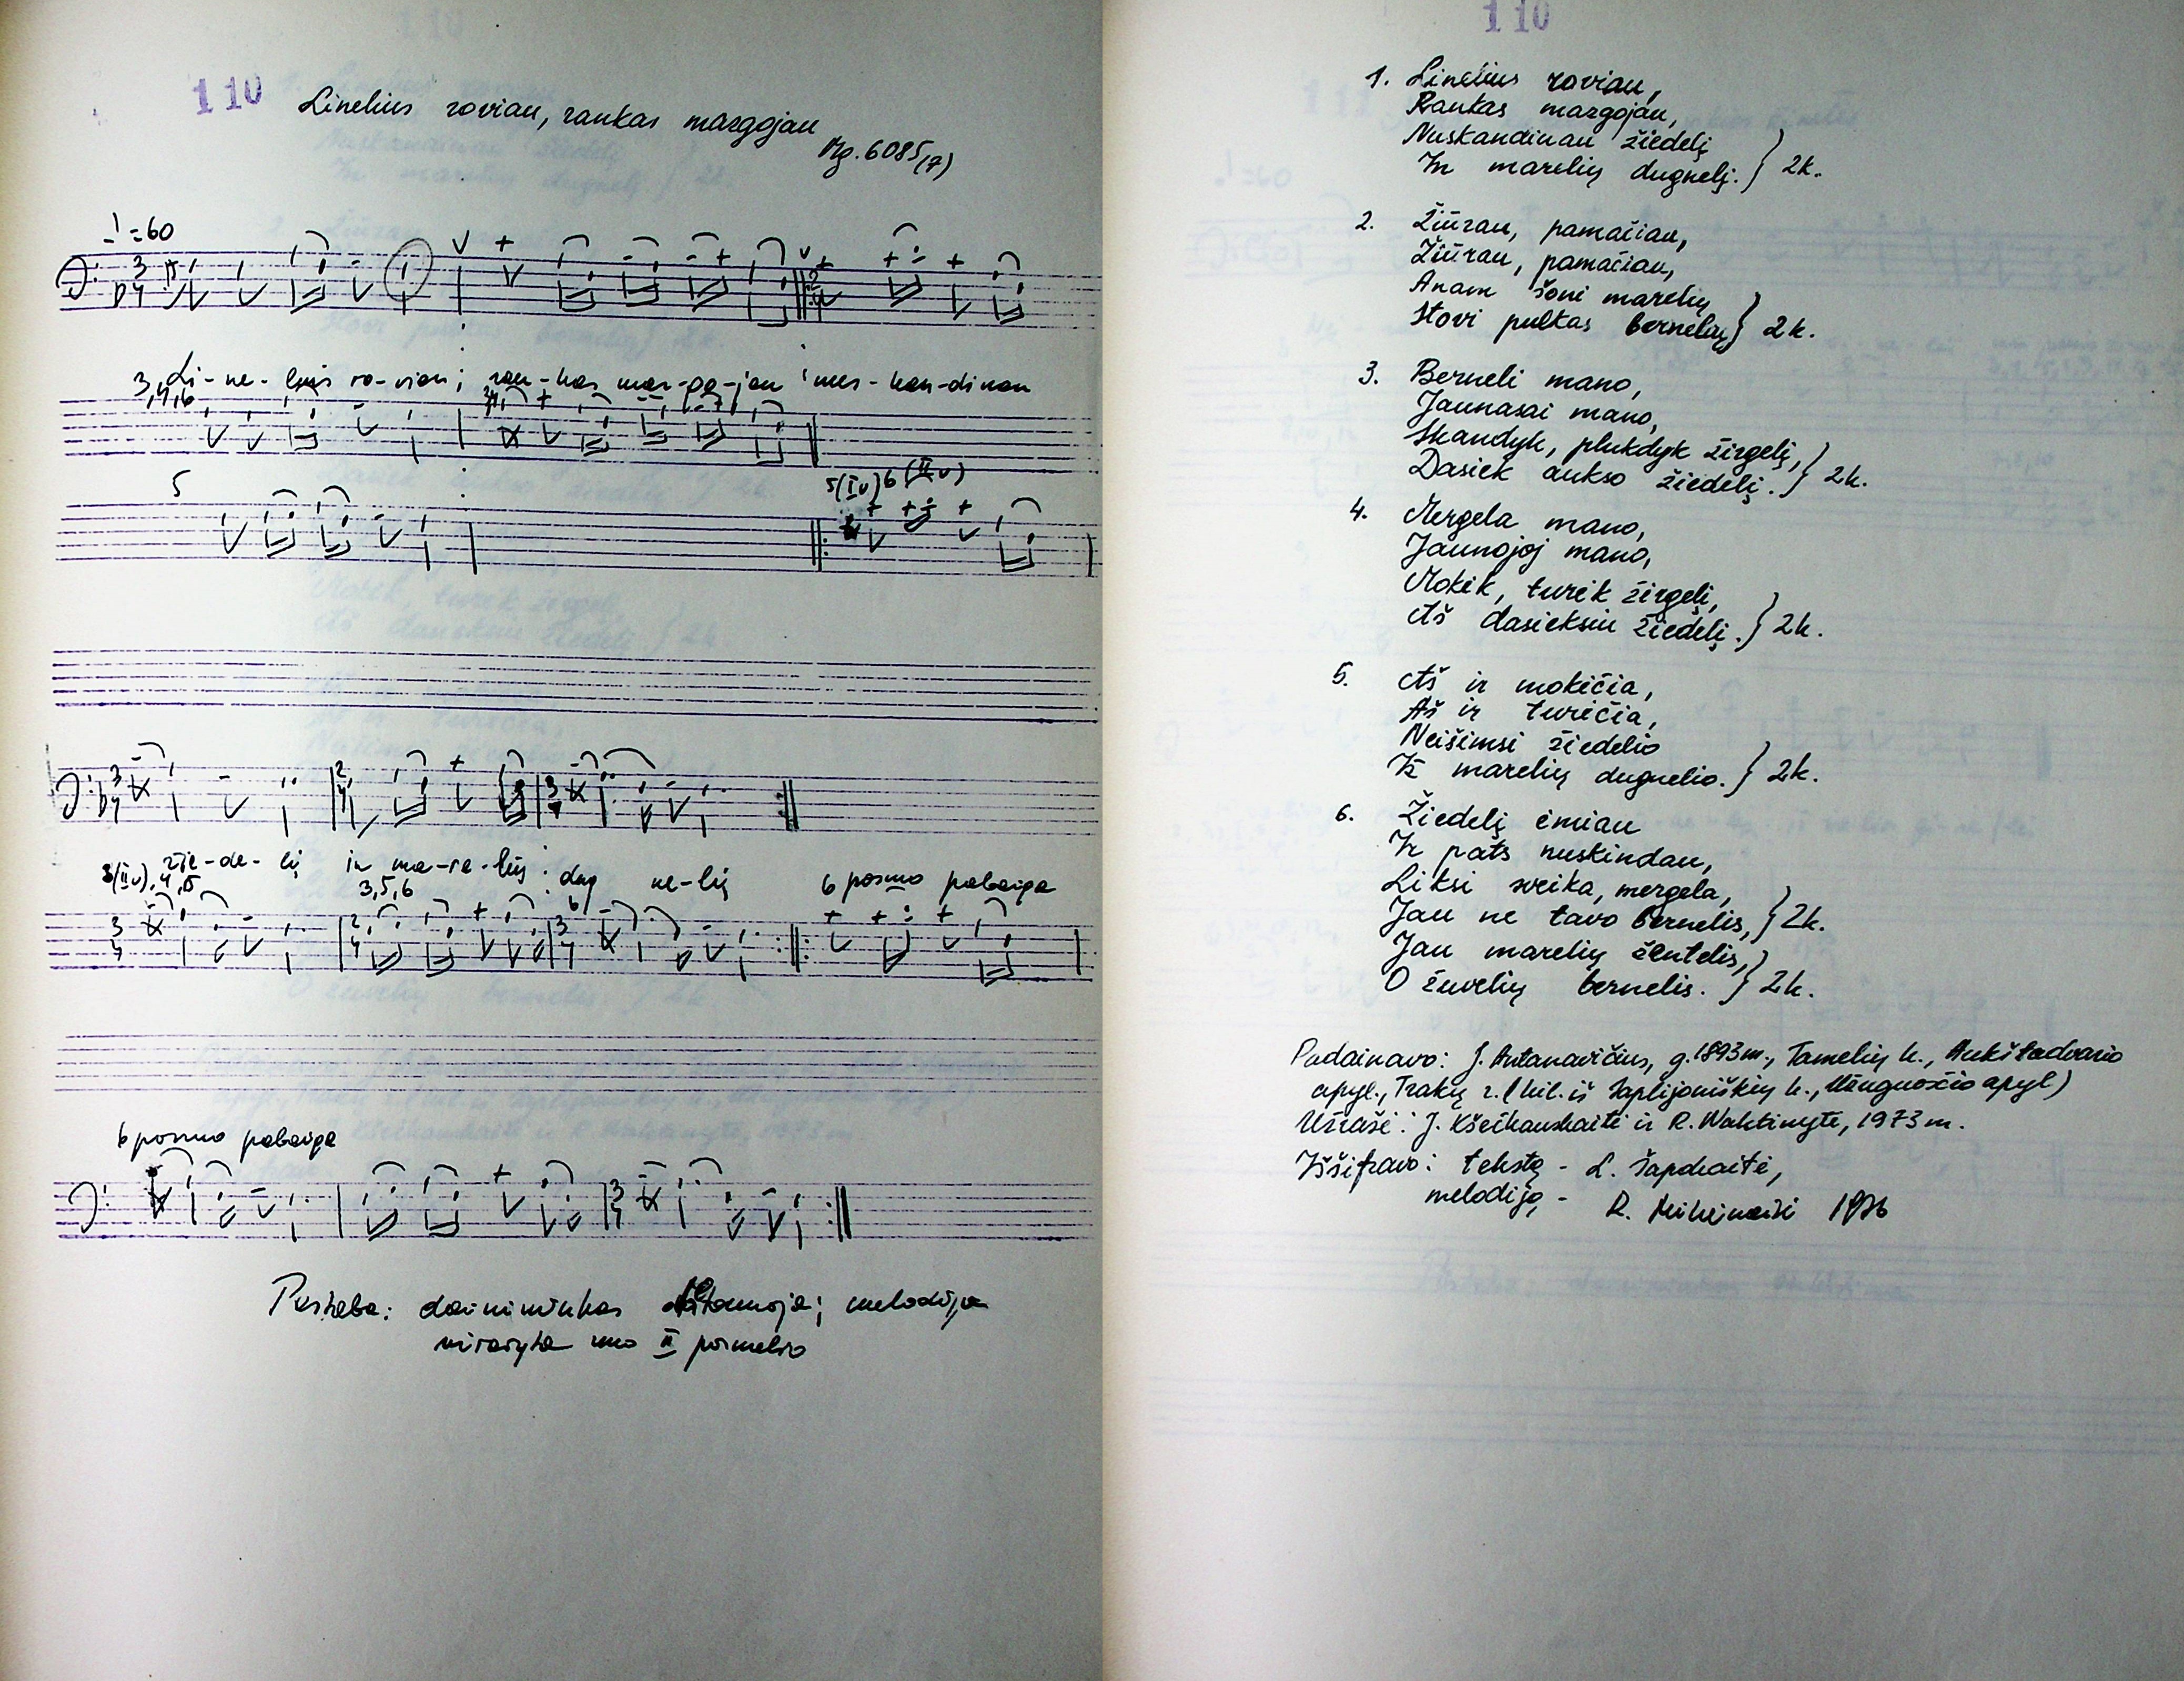 110
Linelius roviau, rankas mazgojau
Mg. 6085(7)
♩=60
Li-ne-lius ro-viau; ran-kas maz-go-jau nus-kan-dinau
3,4,6
5
5(I v) 6 (II v)
žie-de-lį in ma-re-lių dug ne-lį
3(II v), 4, 5
3,5,6
6
6 posmo pabaiga
6 posmo pabaiga
Pastaba: dainininkas detonuoja; melodija
užrašyta nuo II posmelio
110
1. Linelius roviau,
Rankas mazgojau,
Nuskandinau žiedelį
In marelių dugnelį. } 2k.
2. Žiūrau, pamačiau,
Žiūrau, pamačiau,
Anam šoni marelių
Stovi pulkas bernelių } 2k.
3. Berneli mano,
Jaunasai mano,
Skandyk, plukdyk žirgelį,
Dasiek aukso žiedelį. } 2k.
4. Mergela mano,
Jaunojoj mano,
Mokėk, turėk žirgelį,
Aš dasieksiu žiedelį. } 2k.
5. Aš ir mokėčia,
Aš ir turėčia,
Neišimsi žiedelio
Iš marelių dugnelio. } 2k.
6. Žiedelį ėmiau
Ir pats nuskindau,
Liksi sveika, mergela,
Jau ne tavo bernelis, } 2k.
Jau marelių žentelis,
O žuvelių bernelis. } 2k.
Padainavo: J. Antanavičius, g. 1893 m., Tamelių k., Aukštadvario
apyl., Trakų r. (kil. iš Saplijoniškių k., Užuguosčio apyl)
Užrašė: J. Kšečkauskaitė ir R. Waktinytė, 1973 m.
Iššifravo: tekstą - L. Sapkaitė,
melodiją - R. 1976